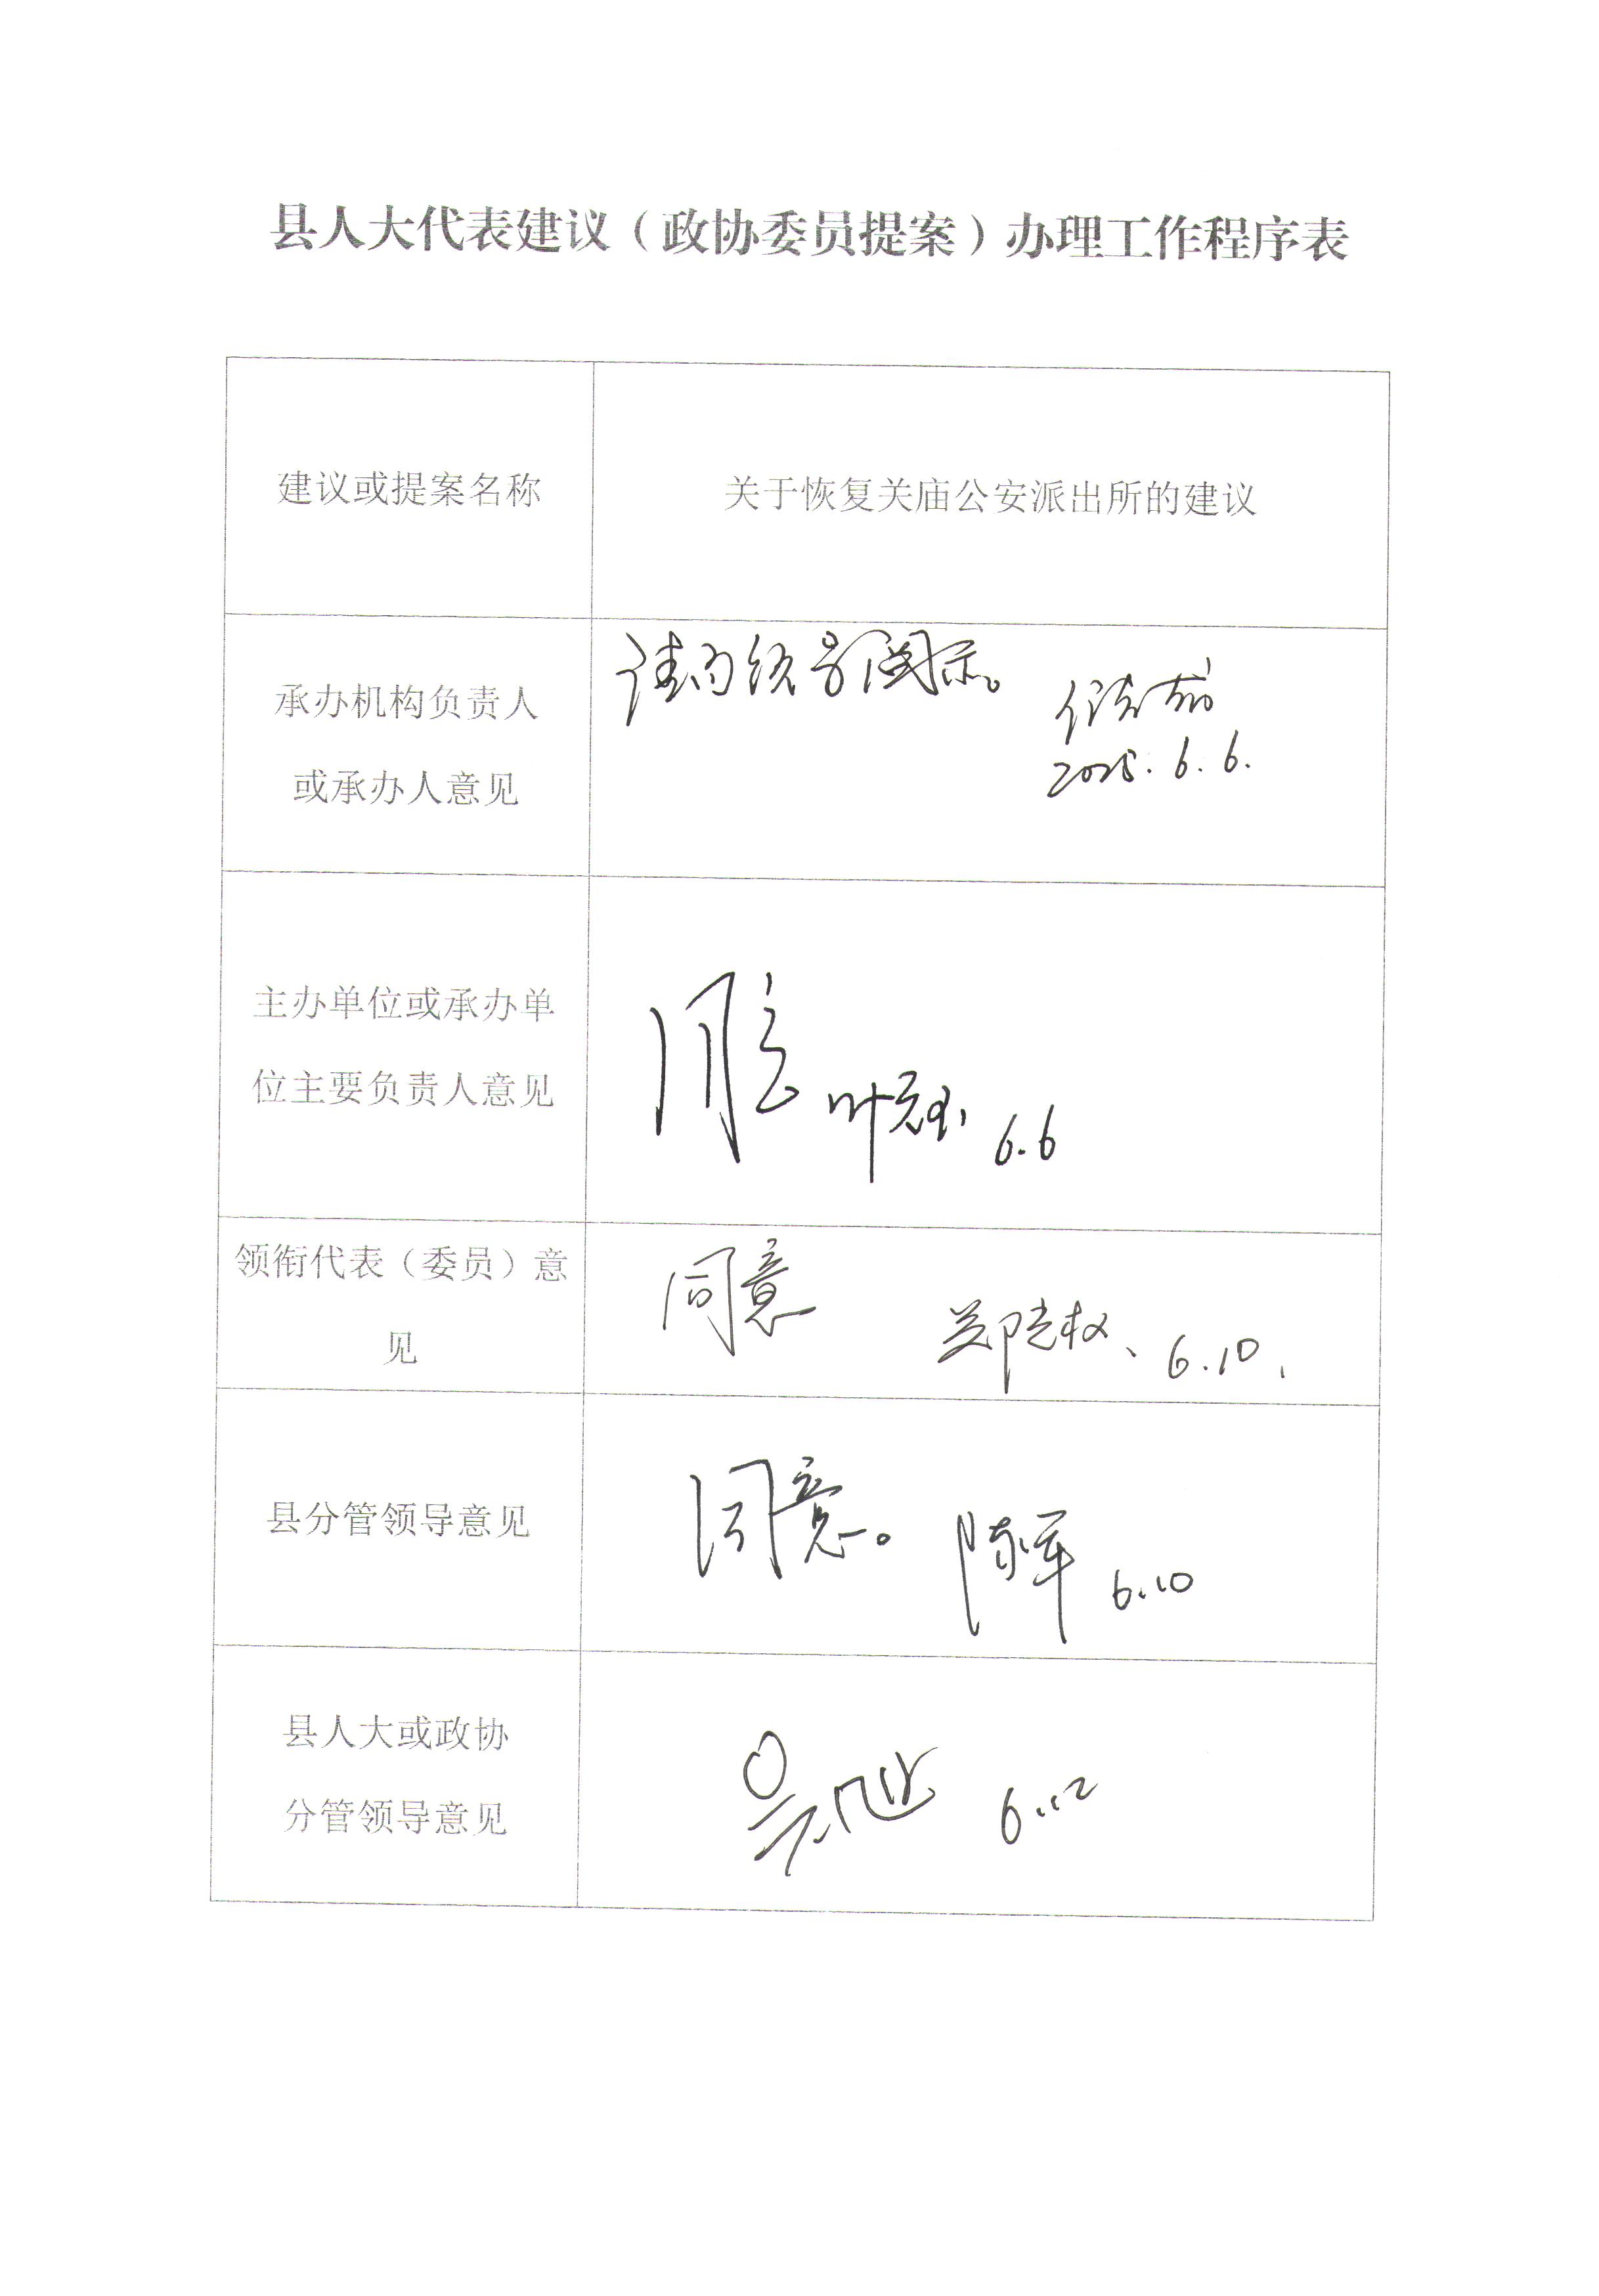 县人大代表建议（政协委员提案）办理工作程序表
建议或提案名称
关于恢复关庙公安派出所的建议
承办机构负责人
或承办人意见
请 阅示。
2025.6.6.
主办单位或承办单
位主要负责人意见
同意
叶 6.6
领衔代表（委员）意
见
同意 郑 权、6.10.
县分管领导意见
同意。 陈军 6.10
县人大或政协
分管领导意见
吴 6.12